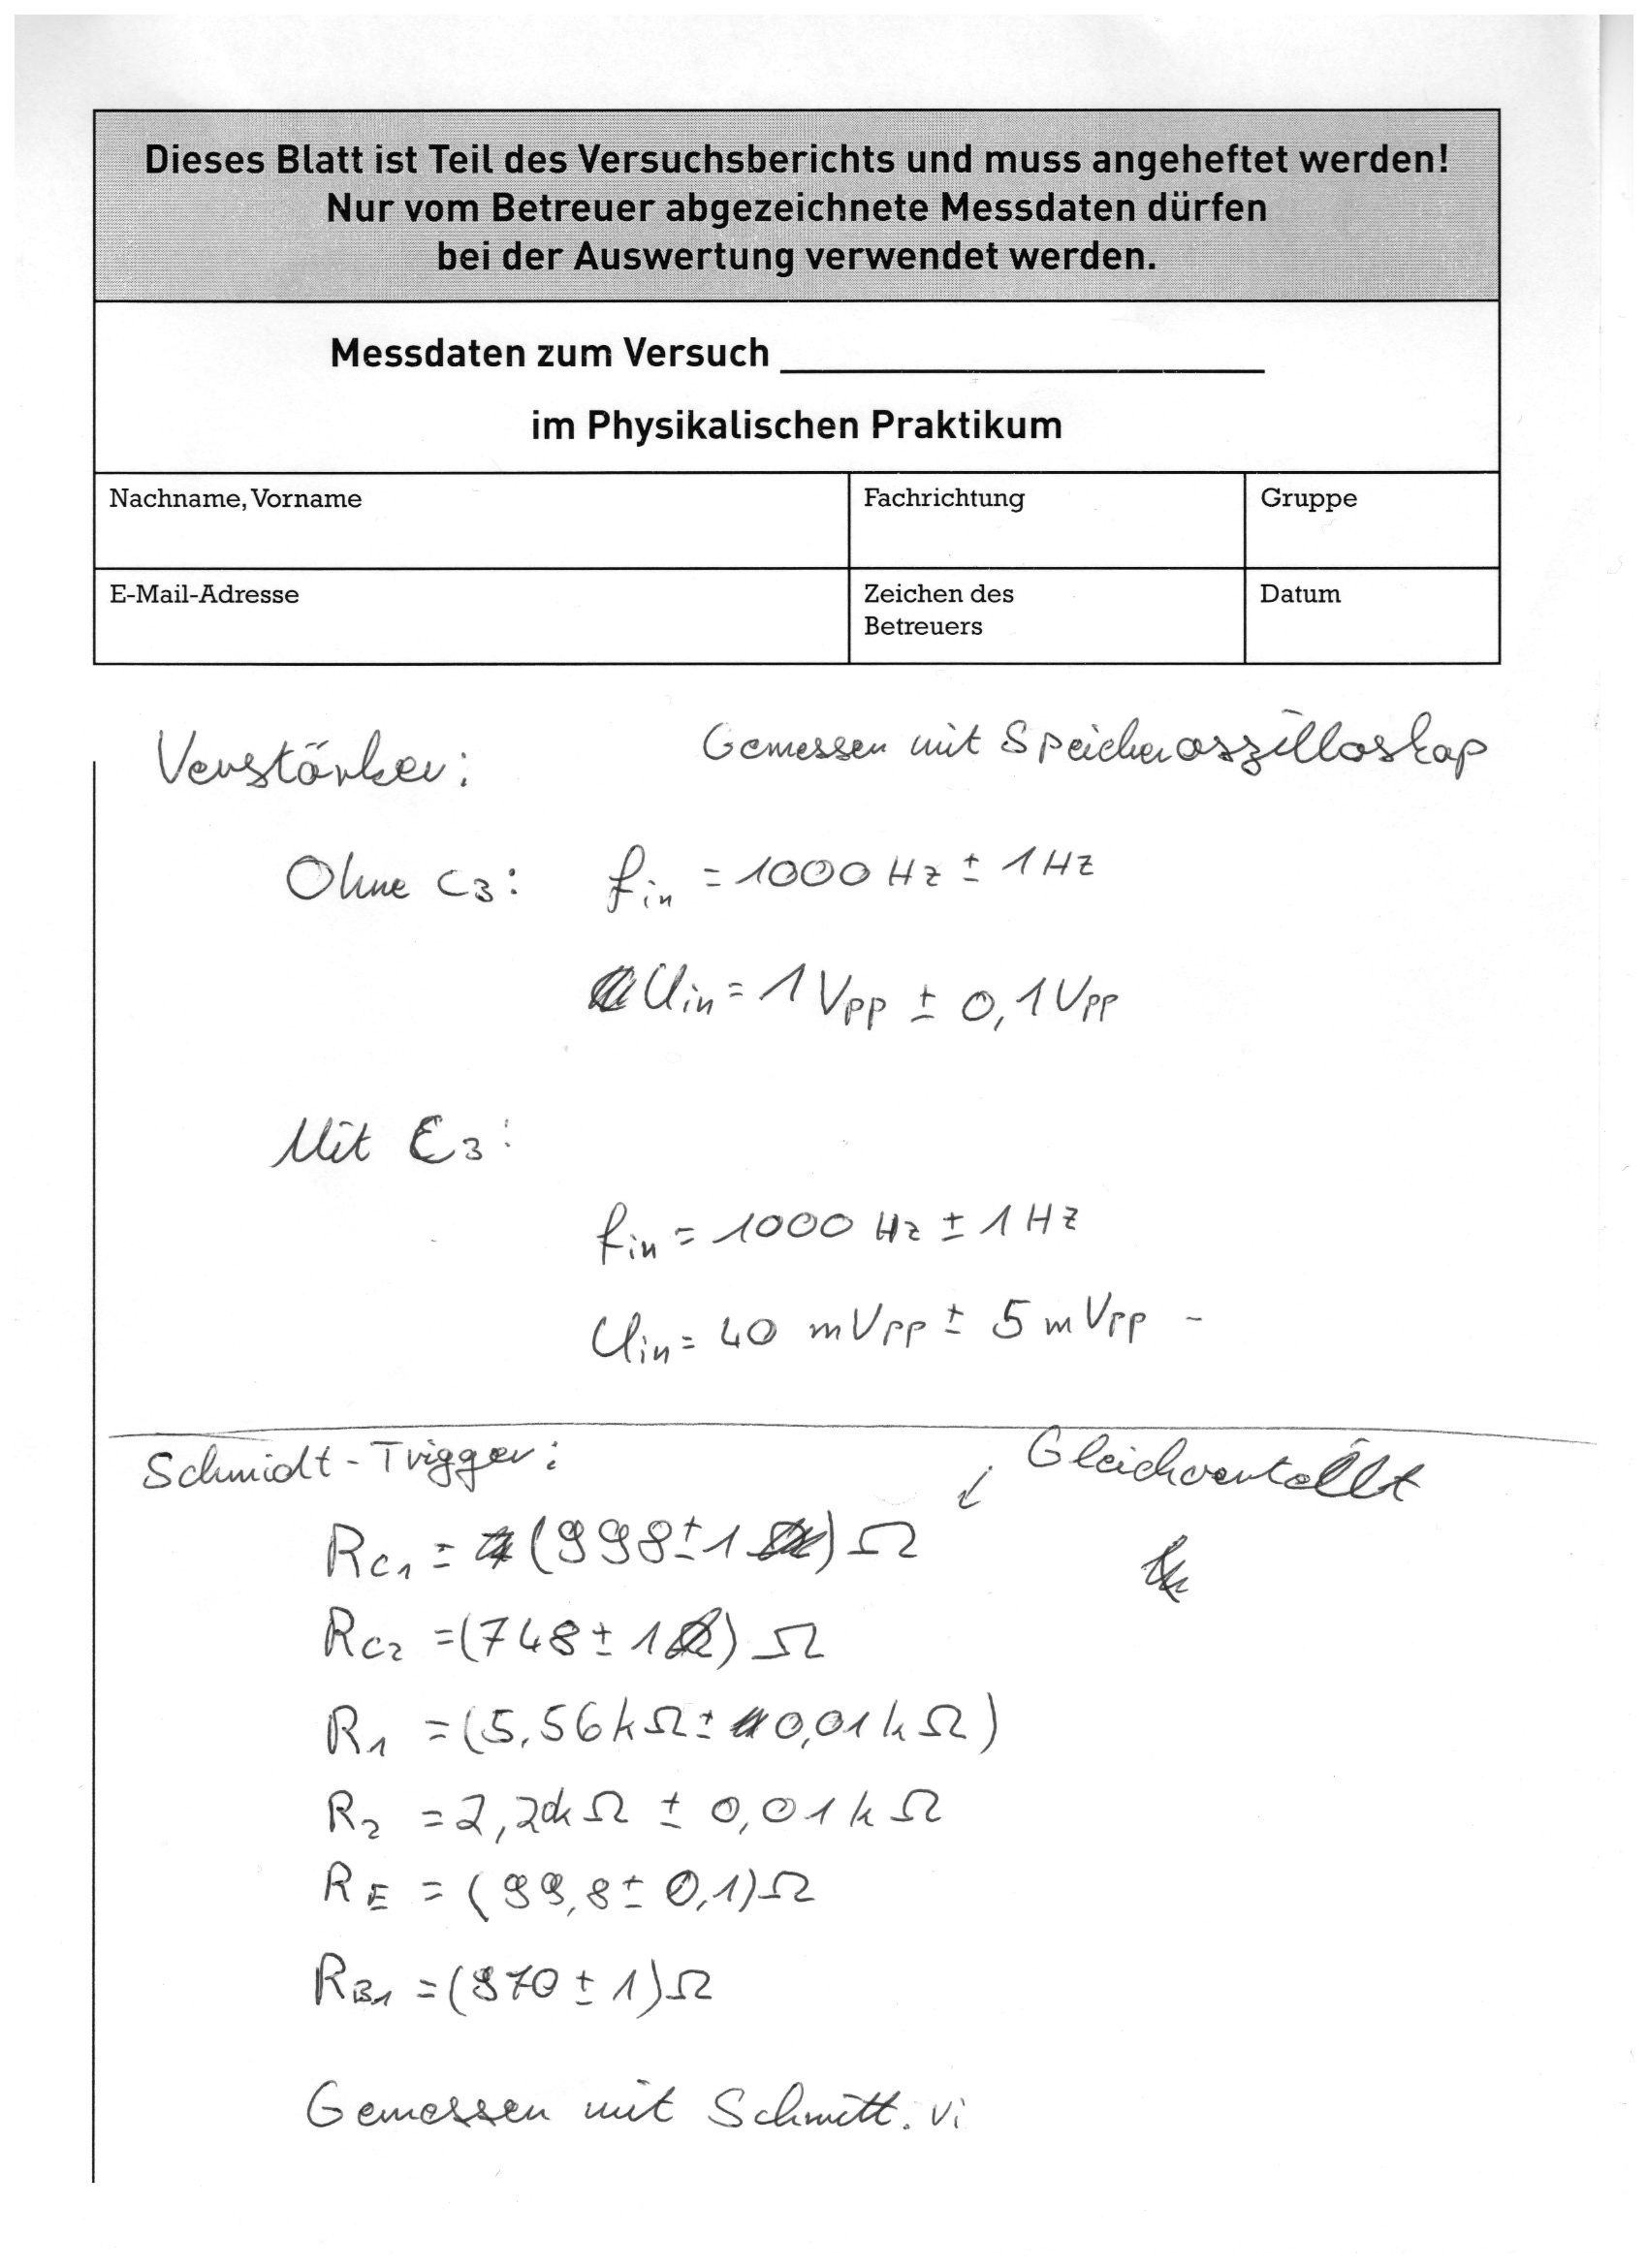 Dieses Blatt ist Teil des Versuchsberichts und muss angeheftet werden!
Nur vom Betreuer abgezeichnete Messdaten dürfen
bei der Auswertung verwendet werden.
Messdaten zum Versuch
im Physikalischen Praktikum
Nachname, Vorname
Fachrichtung
Gruppe
E-Mail-Adresse
Zeichen des
Betreuers
Datum
Verstärker: Gemessen mit Speicheroszilloskop
Ohne C3: fin = 1000 Hz ± 1 Hz
Uin = 1 Vpp ± 0,1 Vpp
Mit C3:
fin = 1000 Hz ± 1 Hz
Uin = 40 mVpp ± 5 mVpp
Schmidt-Trigger:
RC1 = (998 ± 1) Ω
RC2 = (748 ± 1) Ω
R1 = (5,56 kΩ ± 0,01 kΩ)
R2 = 2,2 kΩ ± 0,01 kΩ
RE = (99,8 ± 0,1) Ω
RB1 = (970 ± 1) Ω
Gemessen mit Schmitt.vi